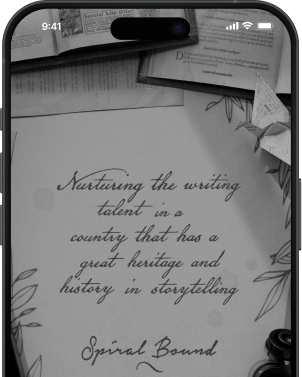 9:41
Special Life Offer
Nurturing the writing
talent in a
country that has a
great heritage and
history in storytelling
Spiral Bound